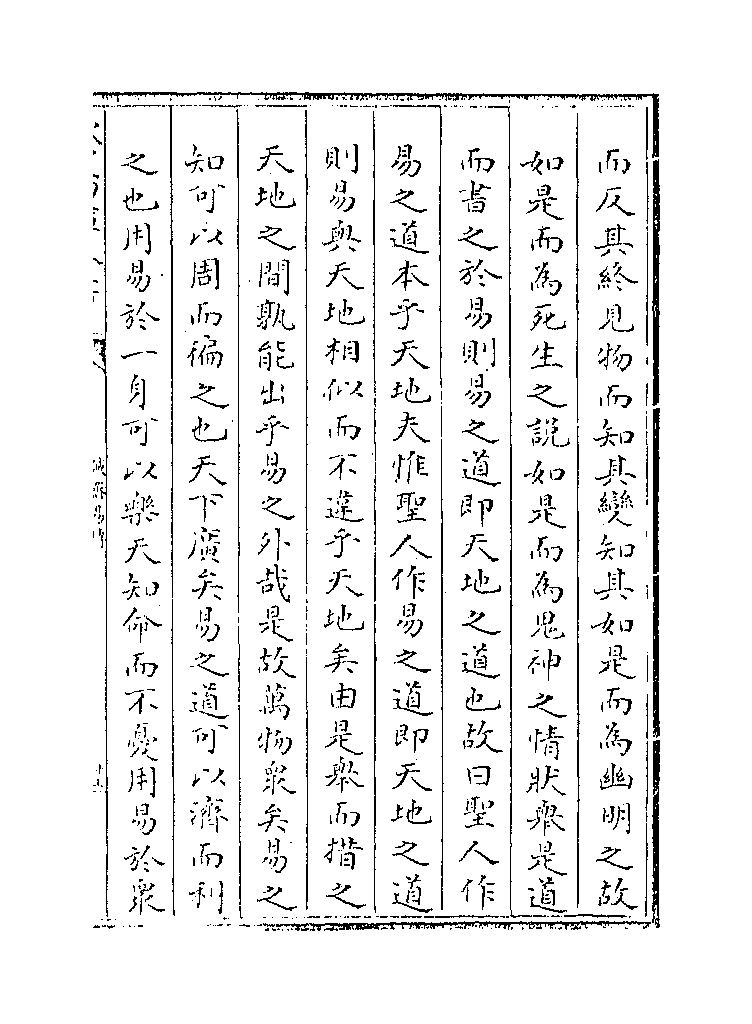 而反其終見物而知其變知其如是而為幽明之故
如是而為死生之說如是而為鬼神之情狀舉是道
而書之於易則易之道即天地之道也故曰聖人作
易之道本乎天地夫惟聖人作易之道即天地之道
則易與天地相似而不違乎天地矣由是舉而措之
天地之間孰能出乎易之外哉是故萬物衆矣易之
知可以周而徧之也天下廣矣易之道可以濟而利
之也用易於一身可以樂天知命而不憂用易於衆
誠齋易傳